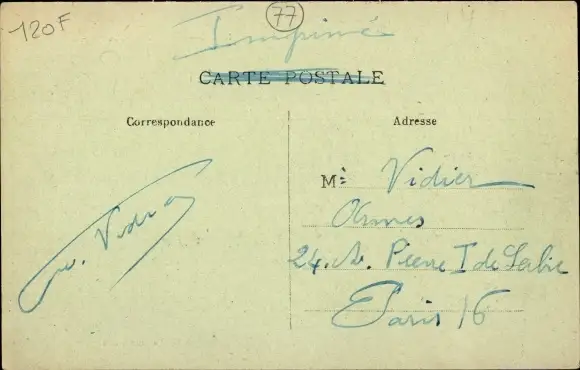 120F
77
Imprimé
CARTE POSTALE
Correspondance
Adresse
M: Vidier
24. Av. Pierre I de Serbie
Paris 16